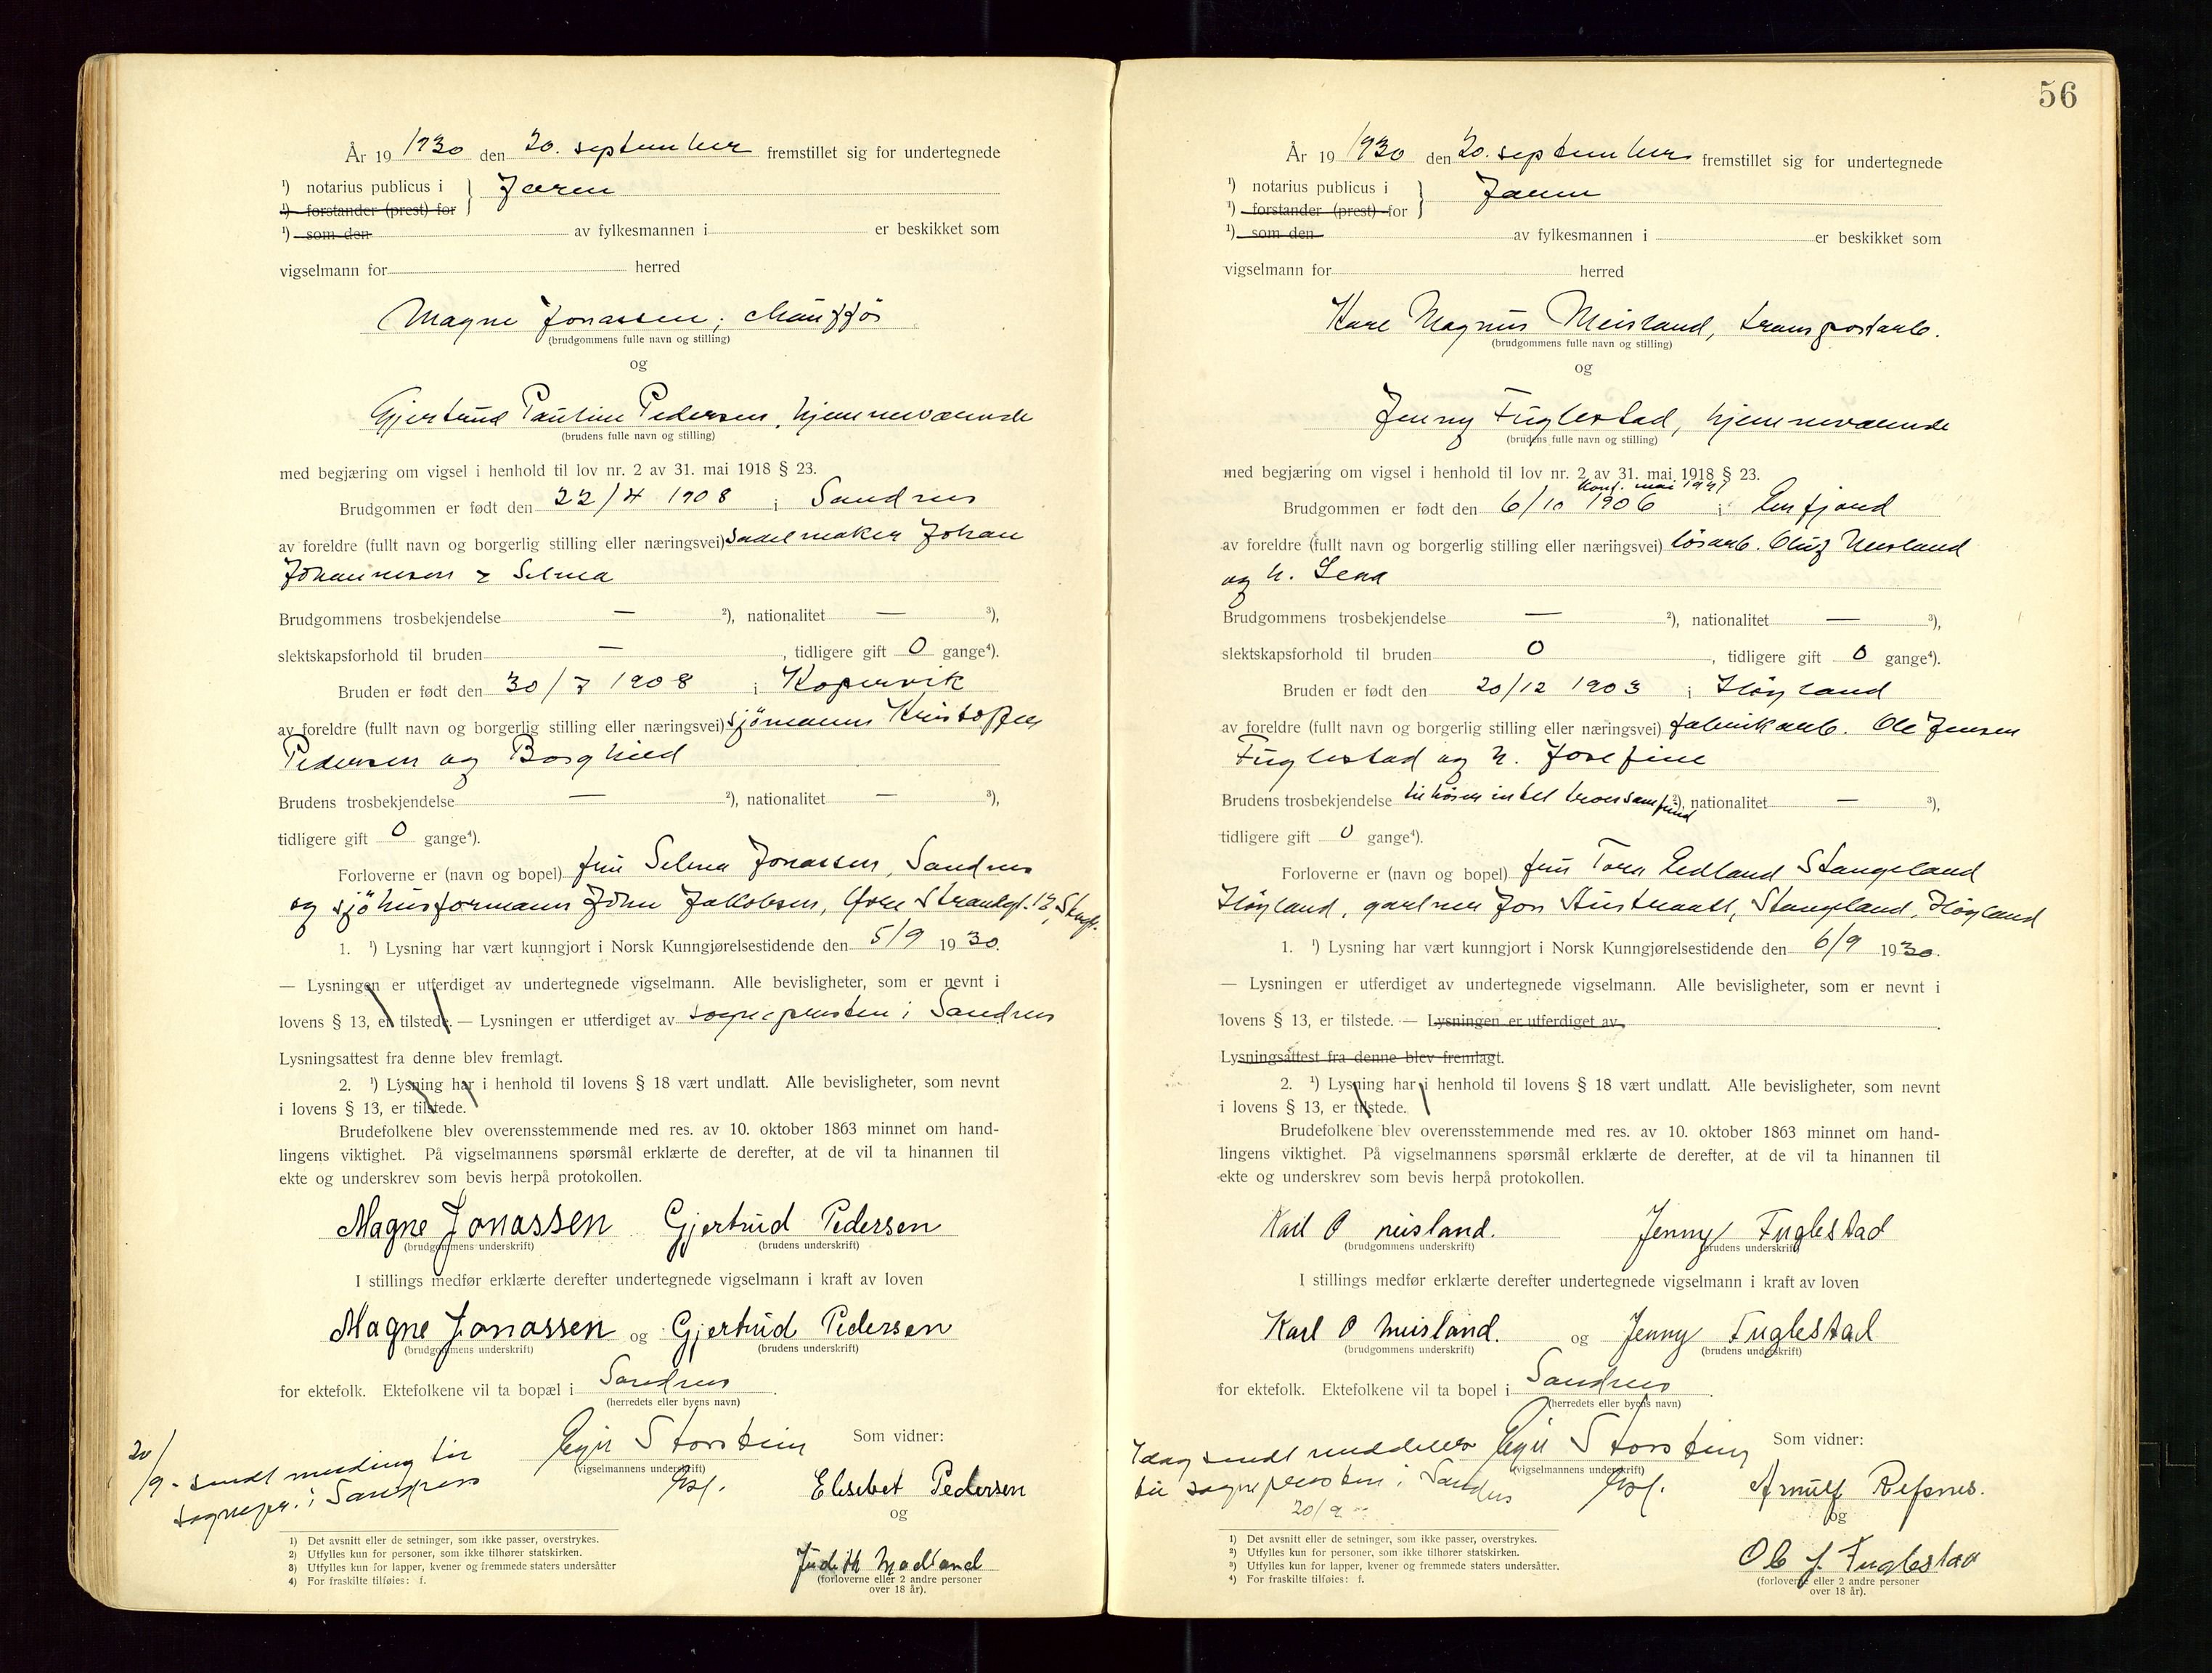 År 19 1930 den 20. september fremstillet sig for undertegnede
¹) notarius publicus i } Jæren
¹) forstander (prest) for
¹) som den av fylkesmannen i er beskikket som
vigselmann for herred
Magne Jonassen, chauffør
(brudgommens fulle navn og stilling)
og
Gjertrud Pauline Pedersen, hjemmeværende
(brudens fulle navn og stilling)
med begjæring om vigsel i henhold til lov nr. 2 av 31. mai 1918 § 23.
Brudgommen er født den 22/4 1908 i Sandnes
av foreldre (fullt navn og borgerlig stilling eller næringsvei) sadelmaker Johan
Johannesen & Selma
Brudgommens trosbekjendelse — ²), nationalitet — ³),
slektskapsforhold til bruden — , tidligere gift 0 gange⁴).
Bruden er født den 30/7 1908 i Kopervik
av foreldre (fullt navn og borgerlig stilling eller næringsvei) sjømann Kristoffer
Pedersen og Borghild
Brudens trosbekjendelse — ²), nationalitet — ³),
tidligere gift 0 gange⁴).
Forloverne er (navn og bopel) fru Selma Jonassen, Sandnes
og sjøhusformann John Jakobsen, Øvre Strandgt. 12, Stvgr.
1. ¹) Lysning har vært kunngjort i Norsk Kunngjørelsestidende den 5/9 1930.
— Lysningen er utferdiget av undertegnede vigselmann. Alle bevisligheter, som er nevnt i
lovens § 13, er tilstede. — Lysningen er utferdiget av sognepresten i Sandnes
Lysningsattest fra denne blev fremlagt.
2. ¹) Lysning har i henhold til lovens § 18 vært undlatt. Alle bevisligheter, som nevnt
i lovens § 13, er tilstede.
Brudefolkene blev overensstemmende med res. av 10. oktober 1863 minnet om hand-
lingens viktighet. På vigselmannens spørsmål erklærte de derefter, at de vil ta hinannen til
ekte og underskrev som bevis herpå protokollen.
Magne Jonassen Gjertrud Pedersen
(brudgommens underskrift) (brudens underskrift)
I stillings medfør erklærte derefter undertegnede vigselmann i kraft av loven
Magne Jonassen og Gjertrud Pedersen
(brudgommens underskrift) (brudens underskrift)
for ektefolk. Ektefolkene vil ta bopæl i Sandnes .
(herredets eller byens navn)
Egil Storstein Som vidner:
(vigselmannens underskrift)
20/9 - sendt melding til
sognepr. i Sandnes
Elisebet Pedersen
og
Judith Madland
(forloverne eller 2 andre personer
over 18 år).
1) Det avsnitt eller de setninger, som ikke passer, overstrykes.
2) Utfylles kun for personer, som ikke tilhører statskirken.
3) Utfylles kun for lapper, kvener og fremmede staters undersåtter
4) For fraskilte tilføies: f.
56
År 19 1930 den 20. september fremstillet sig for undertegnede
¹) notarius publicus i } Jæren
¹) forstander (prest) for
¹) som den av fylkesmannen i er beskikket som
vigselmann for herred
Karl Magnus Meisland, transportarb.
(brudgommens fulle navn og stilling)
og
Jenny Fuglestad, hjemmeværende
(brudens fulle navn og stilling)
med begjæring om vigsel i henhold til lov nr. 2 av 31. mai 1918 § 23.
Brudgommen er født den 6/10 1906 i
av foreldre (fullt navn og borgerlig stilling eller næringsvei) løsarb. Oluf Meisland
og h. Lena
Brudgommens trosbekjendelse — ²), nationalitet — ³),
slektskapsforhold til bruden 0 , tidligere gift 0 gange⁴).
Bruden er født den 20/12 1903 i Høyland
av foreldre (fullt navn og borgerlig stilling eller næringsvei) fabrikarb. Ole Jensen
Fuglestad og h. Josefine
Brudens trosbekjendelse tilhører intet trossamfund ²), nationalitet — ³),
tidligere gift 0 gange⁴).
Forloverne er (navn og bopel) fru Tora Eedland Stangeland
Høyland, gartner Jon Austraatt, Stangeland, Høyland
1. ¹) Lysning har vært kunngjort i Norsk Kunngjørelsestidende den 6/9 1930.
— Lysningen er utferdiget av undertegnede vigselmann. Alle bevisligheter, som er nevnt i
lovens § 13, er tilstede. — Lysningen er utferdiget av .
Lysningsattest fra denne blev fremlagt.
2. ¹) Lysning har i henhold til lovens § 18 vært undlatt. Alle bevisligheter, som nevnt
i lovens § 13, er tilstede.
Brudefolkene blev overensstemmende med res. av 10. oktober 1863 minnet om hand-
lingens viktighet. På vigselmannens spørsmål erklærte de derefter, at de vil ta hinannen til
ekte og underskrev som bevis herpå protokollen.
Karl O meisland. Jenny Fuglestad
(brudgommens underskrift) (brudens underskrift)
I stillings medfør erklærte derefter undertegnede vigselmann i kraft av loven
Karl O meisland. og Jenny Fuglestad
(brudgommens underskrift) (brudens underskrift)
for ektefolk. Ektefolkene vil ta bopel i Sandnes .
(herredets eller byens navn)
Egil Storstein Som vidner:
(vigselmannens underskrift)
Idag sendt meddelelse
til sognepresten i Sandnes
20/9
Arnulf Refsnes.
og
Ole J. Fuglestad
(forloverne eller 2 andre personer
over 18 år).
1) Det avsnitt eller de setninger, som ikke passer, overstrykes.
2) Utfylles kun for personer, som ikke tilhører statskirken.
3) Utfylles kun for lapper, kvener og fremmede staters undersåtter.
4) For fraskilte tilføies: f.